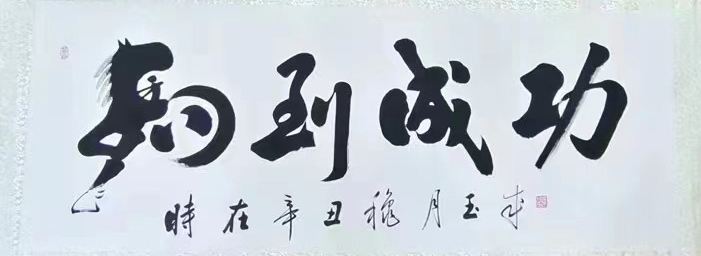 馬到成功
時在辛丑穐月玉